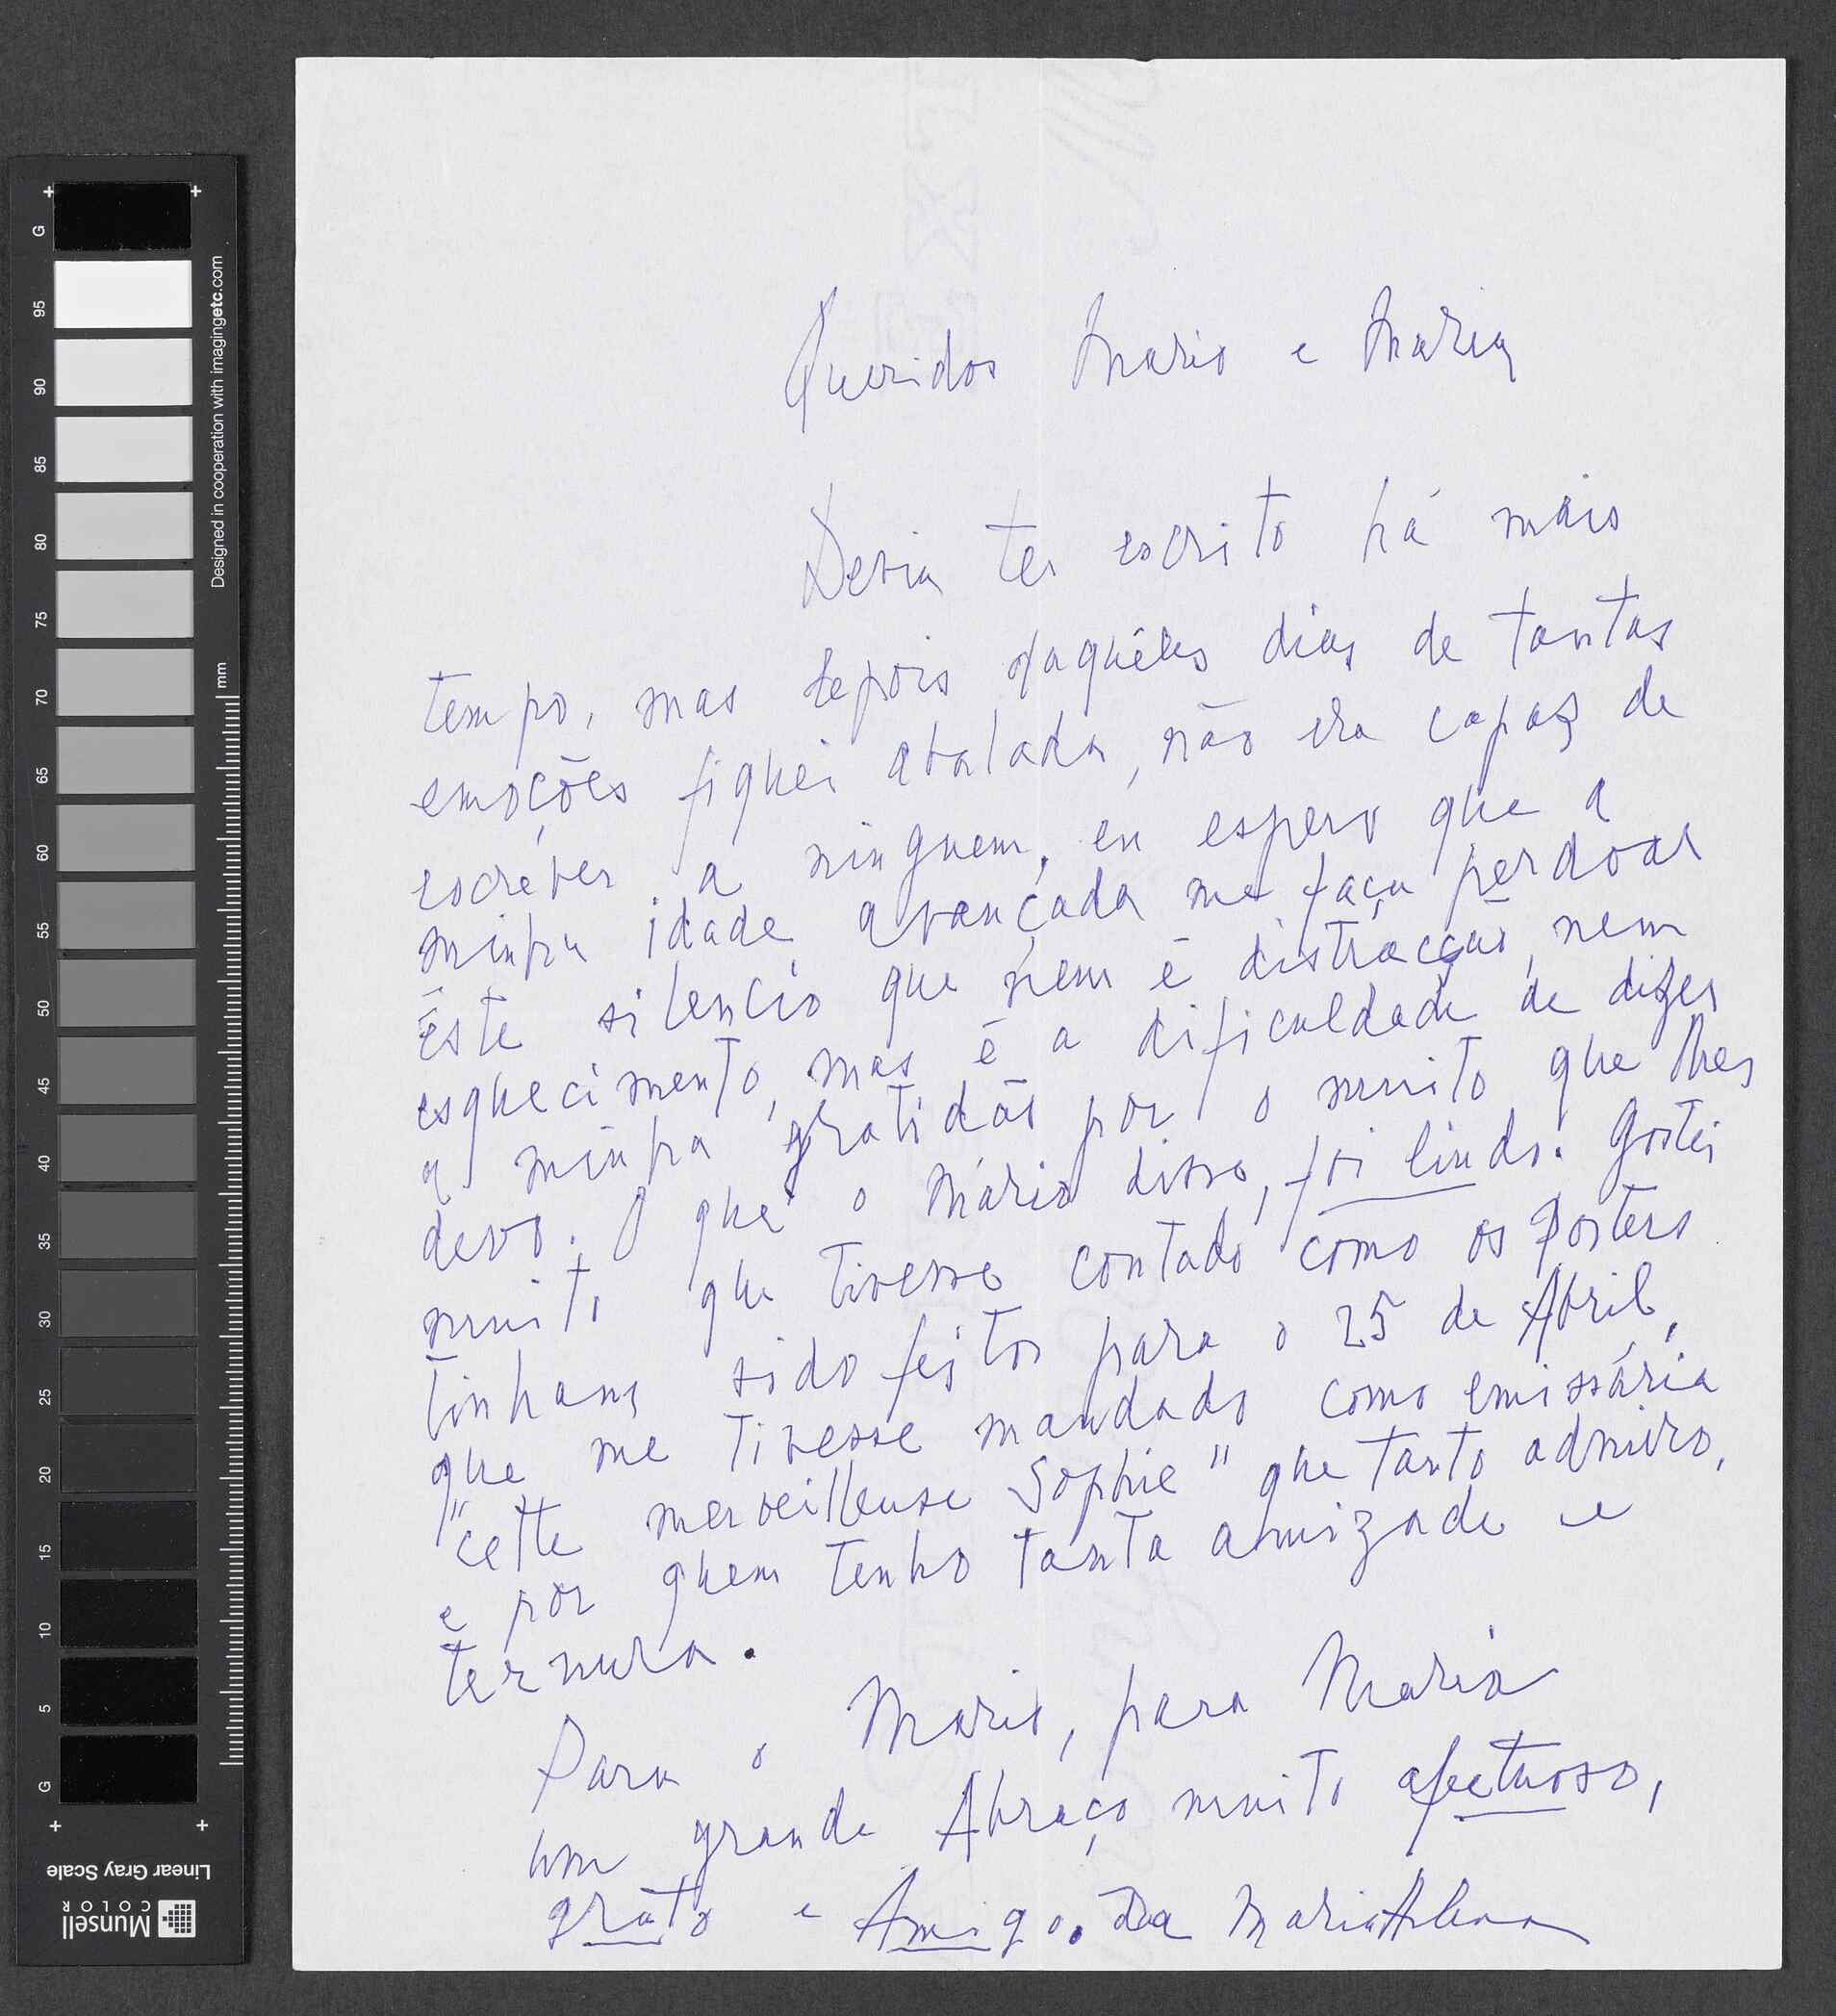 Queridos Mario e Maria
Devia ter escrito há mais
tempo, mas depois daquêles dias de tantas
emoções fiquei abalada, não era capaz de
escrever a ninguem, eu espero que a
minha idade avançada me faça perdoar
êste silencio que nem é distracção, nem
esquecimento, mas é a dificuldade de dizer
a minha gratidão por o muito que lhes
devo. O que o Mário disse, foi lindo. Gostei
muito que tivesse contado como os posters
tinham sido feitos para o 25 de Abril,
que me tivesse mandado como emissária
"cette merveilleuse Sophie" que tanto admiro,
e por quem tenho tanta amizade e
ternura.
Para o Mario, para Maria
um grande Abraço muito afectuoso,
grato e Amigo. Da Maria Helena
G
95
90
85
80
75
70
65
60
55
50
45
40
35
30
25
20
15
10
5
G
mm
Designed in cooperation with imagingetc.com
Linear Gray Scale
Munsell
COLOR